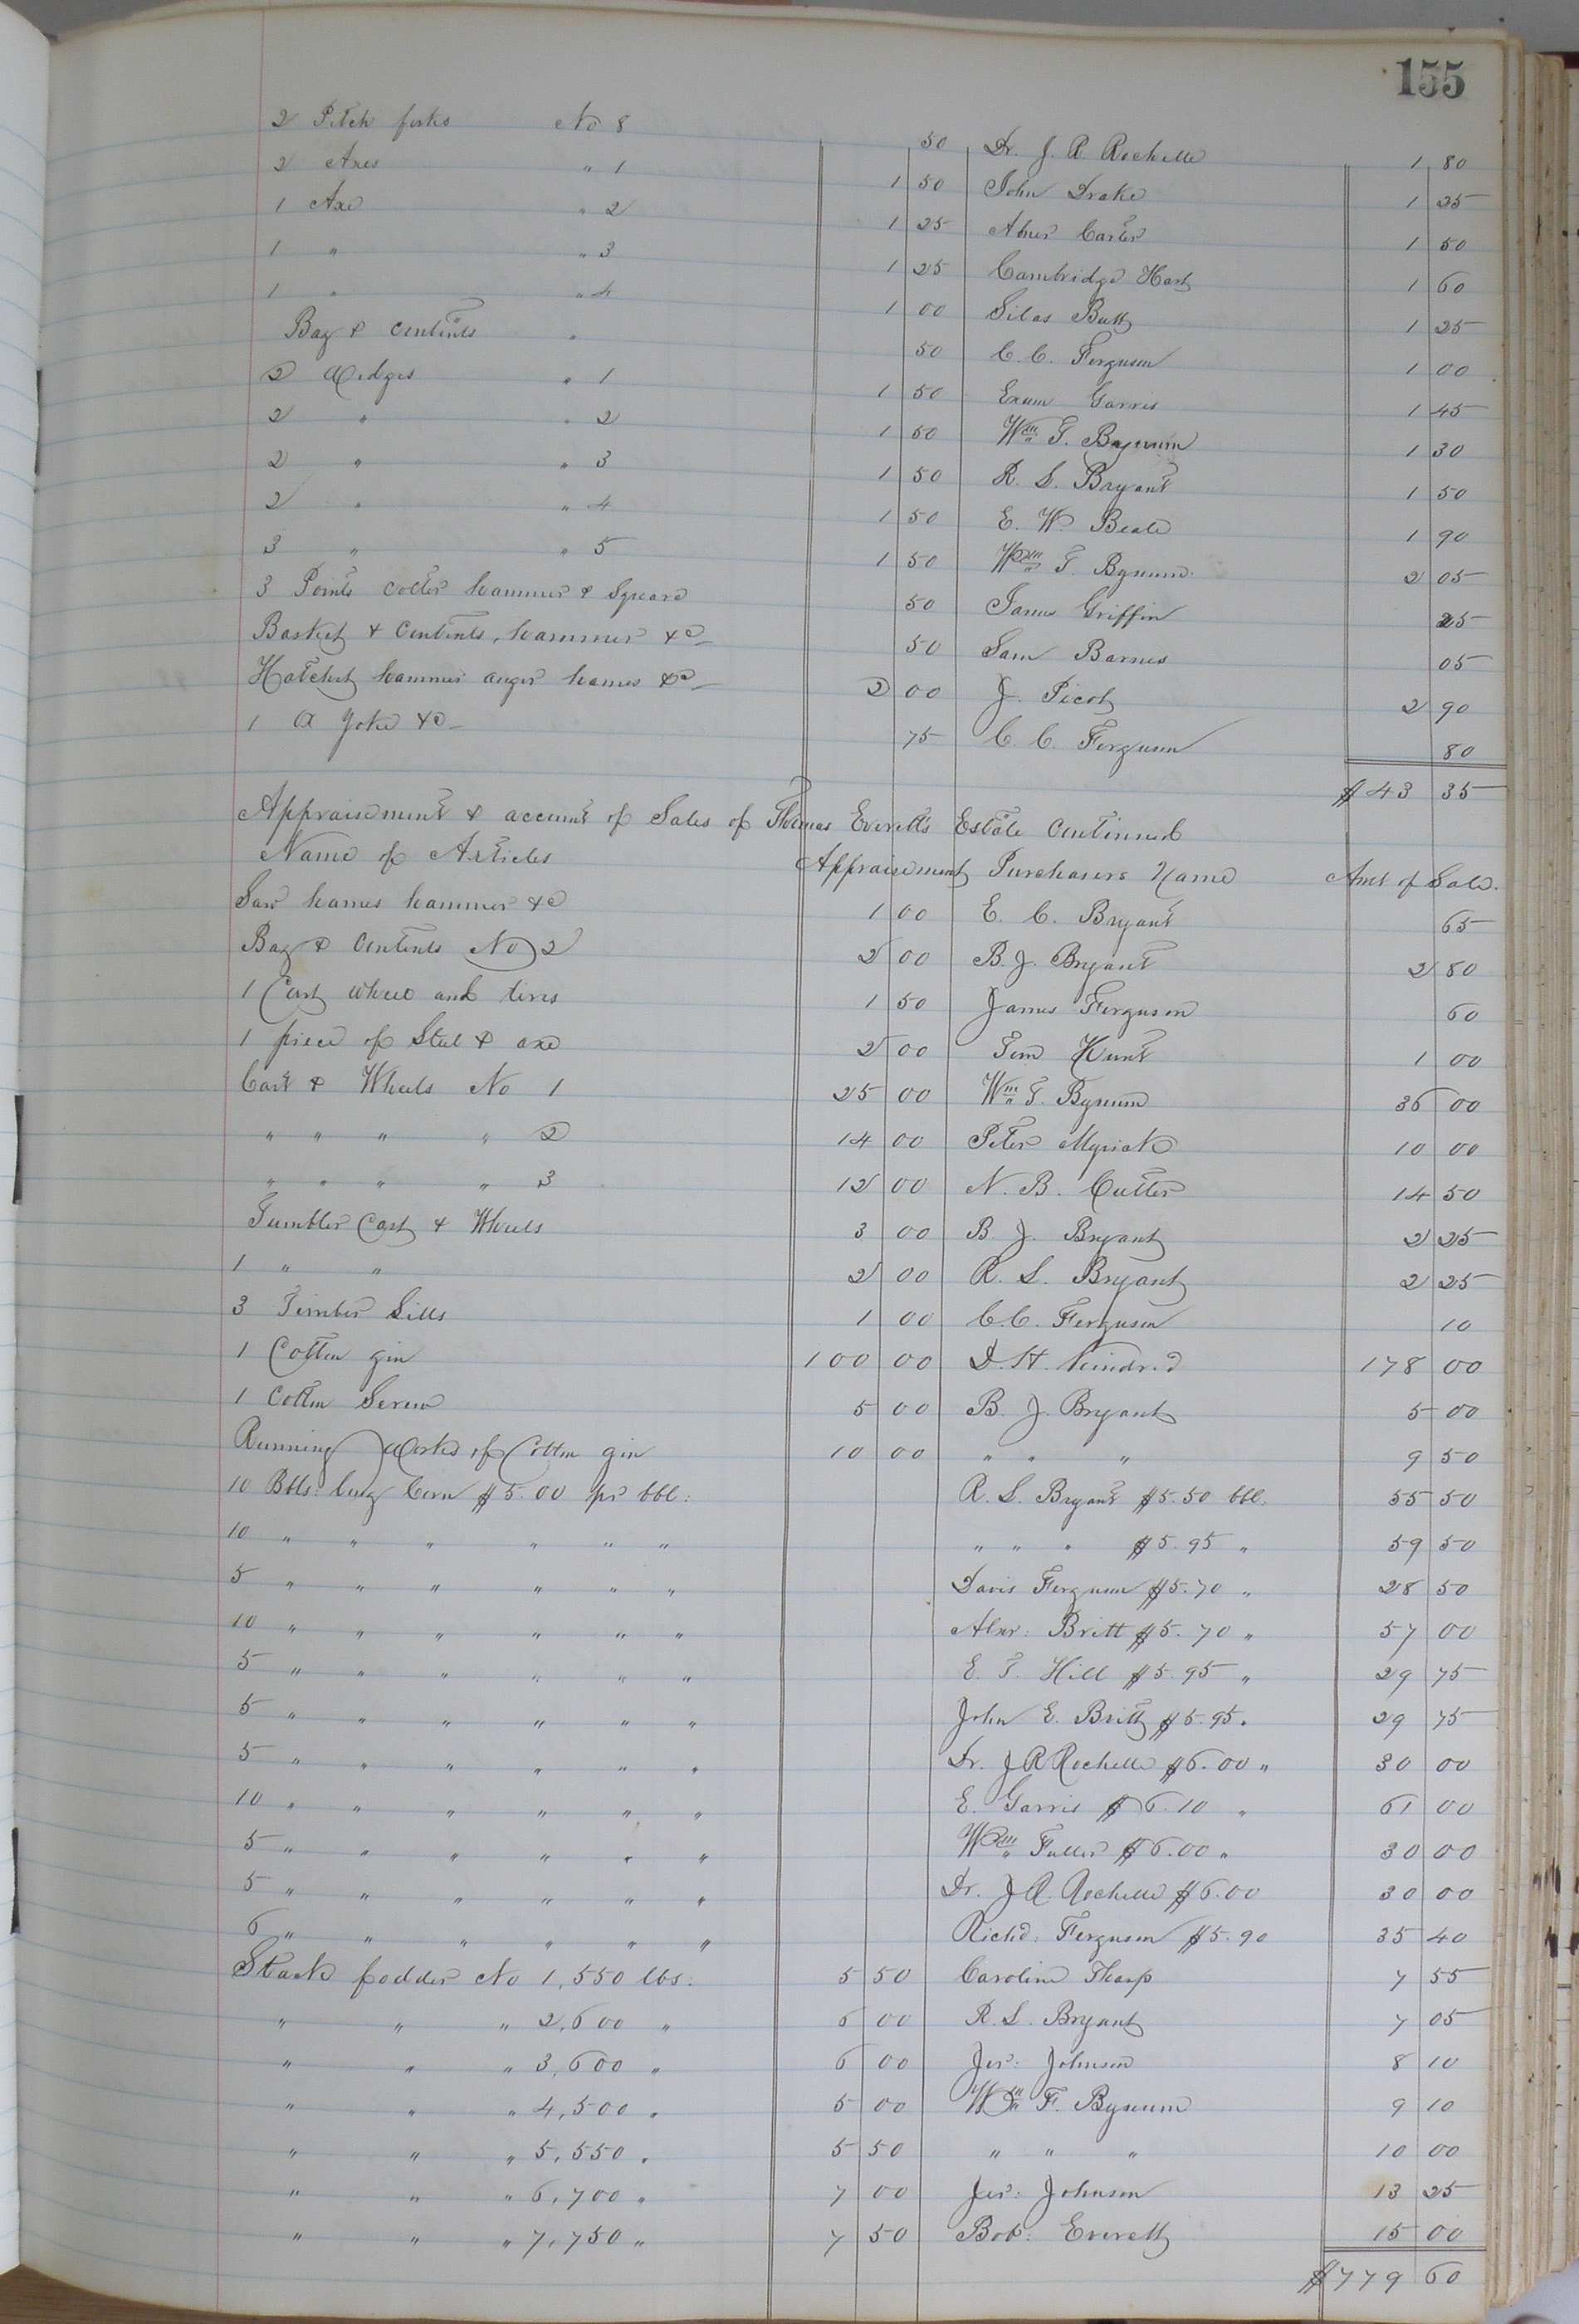 155
2 Pitch forks No 8 50 Dr. J. R. Rochelle 1 80
2 Axes " 1 1 50 John Drake 1 25
1 Axe " 2 1 25 Abner Carter 1 50
1 " " 3 1 25 Cambridge Hart 1 60
1 " " 4 1 00 Silas Butts 1 25
Bag & Contents " 50 C. C. Ferguson 1 00
2 Wedges " 1 1 50 Exum Garris 1 45
2 " " 2 1 50 Wm T. Bynum 1 30
2 " " 3 1 50 R. S. Bryant 1 50
2 " " 4 1 50 E. W. Beale 1 90
3 " " 5 1 50 Wm T. Bynum 2 05
3 Points colter hammer & Square 50 James Griffin 25
Basket & Contents, hammer &c 50 Sam Barnes 05
Hatchet hammer auger hames &c 2 00 J. Picot 2 90
1 Ox Yoke &c 75 C. C. Ferguson 80
$43 35
Appraisement & account of Sales of Thomas Everetts Estate Continued
Name of Articles Appraisement Purchasers Name Amt of Sale.
Saw hames hammer &c 1 00 E. C. Bryant 65
Bag & Contents No 2 2 00 B. J. Bryant 2 80
1 Cart wheel and tires 1 50 James Ferguson 60
1 piece of Steel & axe 2 00 Tim Hunt 1 00
Cart & Wheels No 1 25 00 Wm T. Bynum 36 00
" " " " 2 14 00 Peter Myrick 10 00
" " " " 3 12 00 N. B. Cutler 14 50
Tumbler Cart & Wheels 3 00 B. J. Bryant 2 25
1 " " 2 00 R. S. Bryant 2 25
3 Timber Sills 1 00 C. C. Ferguson 10
1 Cotton gin 100 00 D. H. Kindred 178 00
1 Cotton Screw 5 00 B. J. Bryant 5 00
Running Works of Cotton gin 10 00 " " " 9 50
10 Bbls: long Corn $5.00 pr bbl: R. S. Bryant $5.50 bbl. 55 50
10 " " " " " " " " " $5.95 " 59 50
5 " " " " " " Davis Ferguson $5.70 " 28 50
10 " " " " " " Alxr: Britt $5.70 " 57 00
5 " " " " " " E. T. Hill $5.95 " 29 75
5 " " " " " " John E. Britt $5.95 " 29 75
5 " " " " " " Dr. J R Rochelle $6.00 " 30 00
10 " " " " " " E. Garris $6.10 " 61 00
5 " " " " " " Wm Fuller $6.00 " 30 00
5 " " " " " " Dr. J R. Rochelle $6.00 30 00
6 " " " " " " Richd: Ferguson $5.90 35 40
Stack fodder No 1, 550 lbs: 5 50 Caroline Tharp 7 55
" " " 2, 600 " 6 00 R. S. Bryant 7 05
" " " 3, 600 " 6 00 Jer: Johnson 8 10
" " " 4, 500 " 5 00 Wm F. Bynum 9 10
" " " 5, 550 " 5 50 " " " 10 00
" " " 6, 700 " 7 00 Jer: Johnson 13 25
" " " 7, 750 " 7 50 Bob: Everett 15 00
$779 60